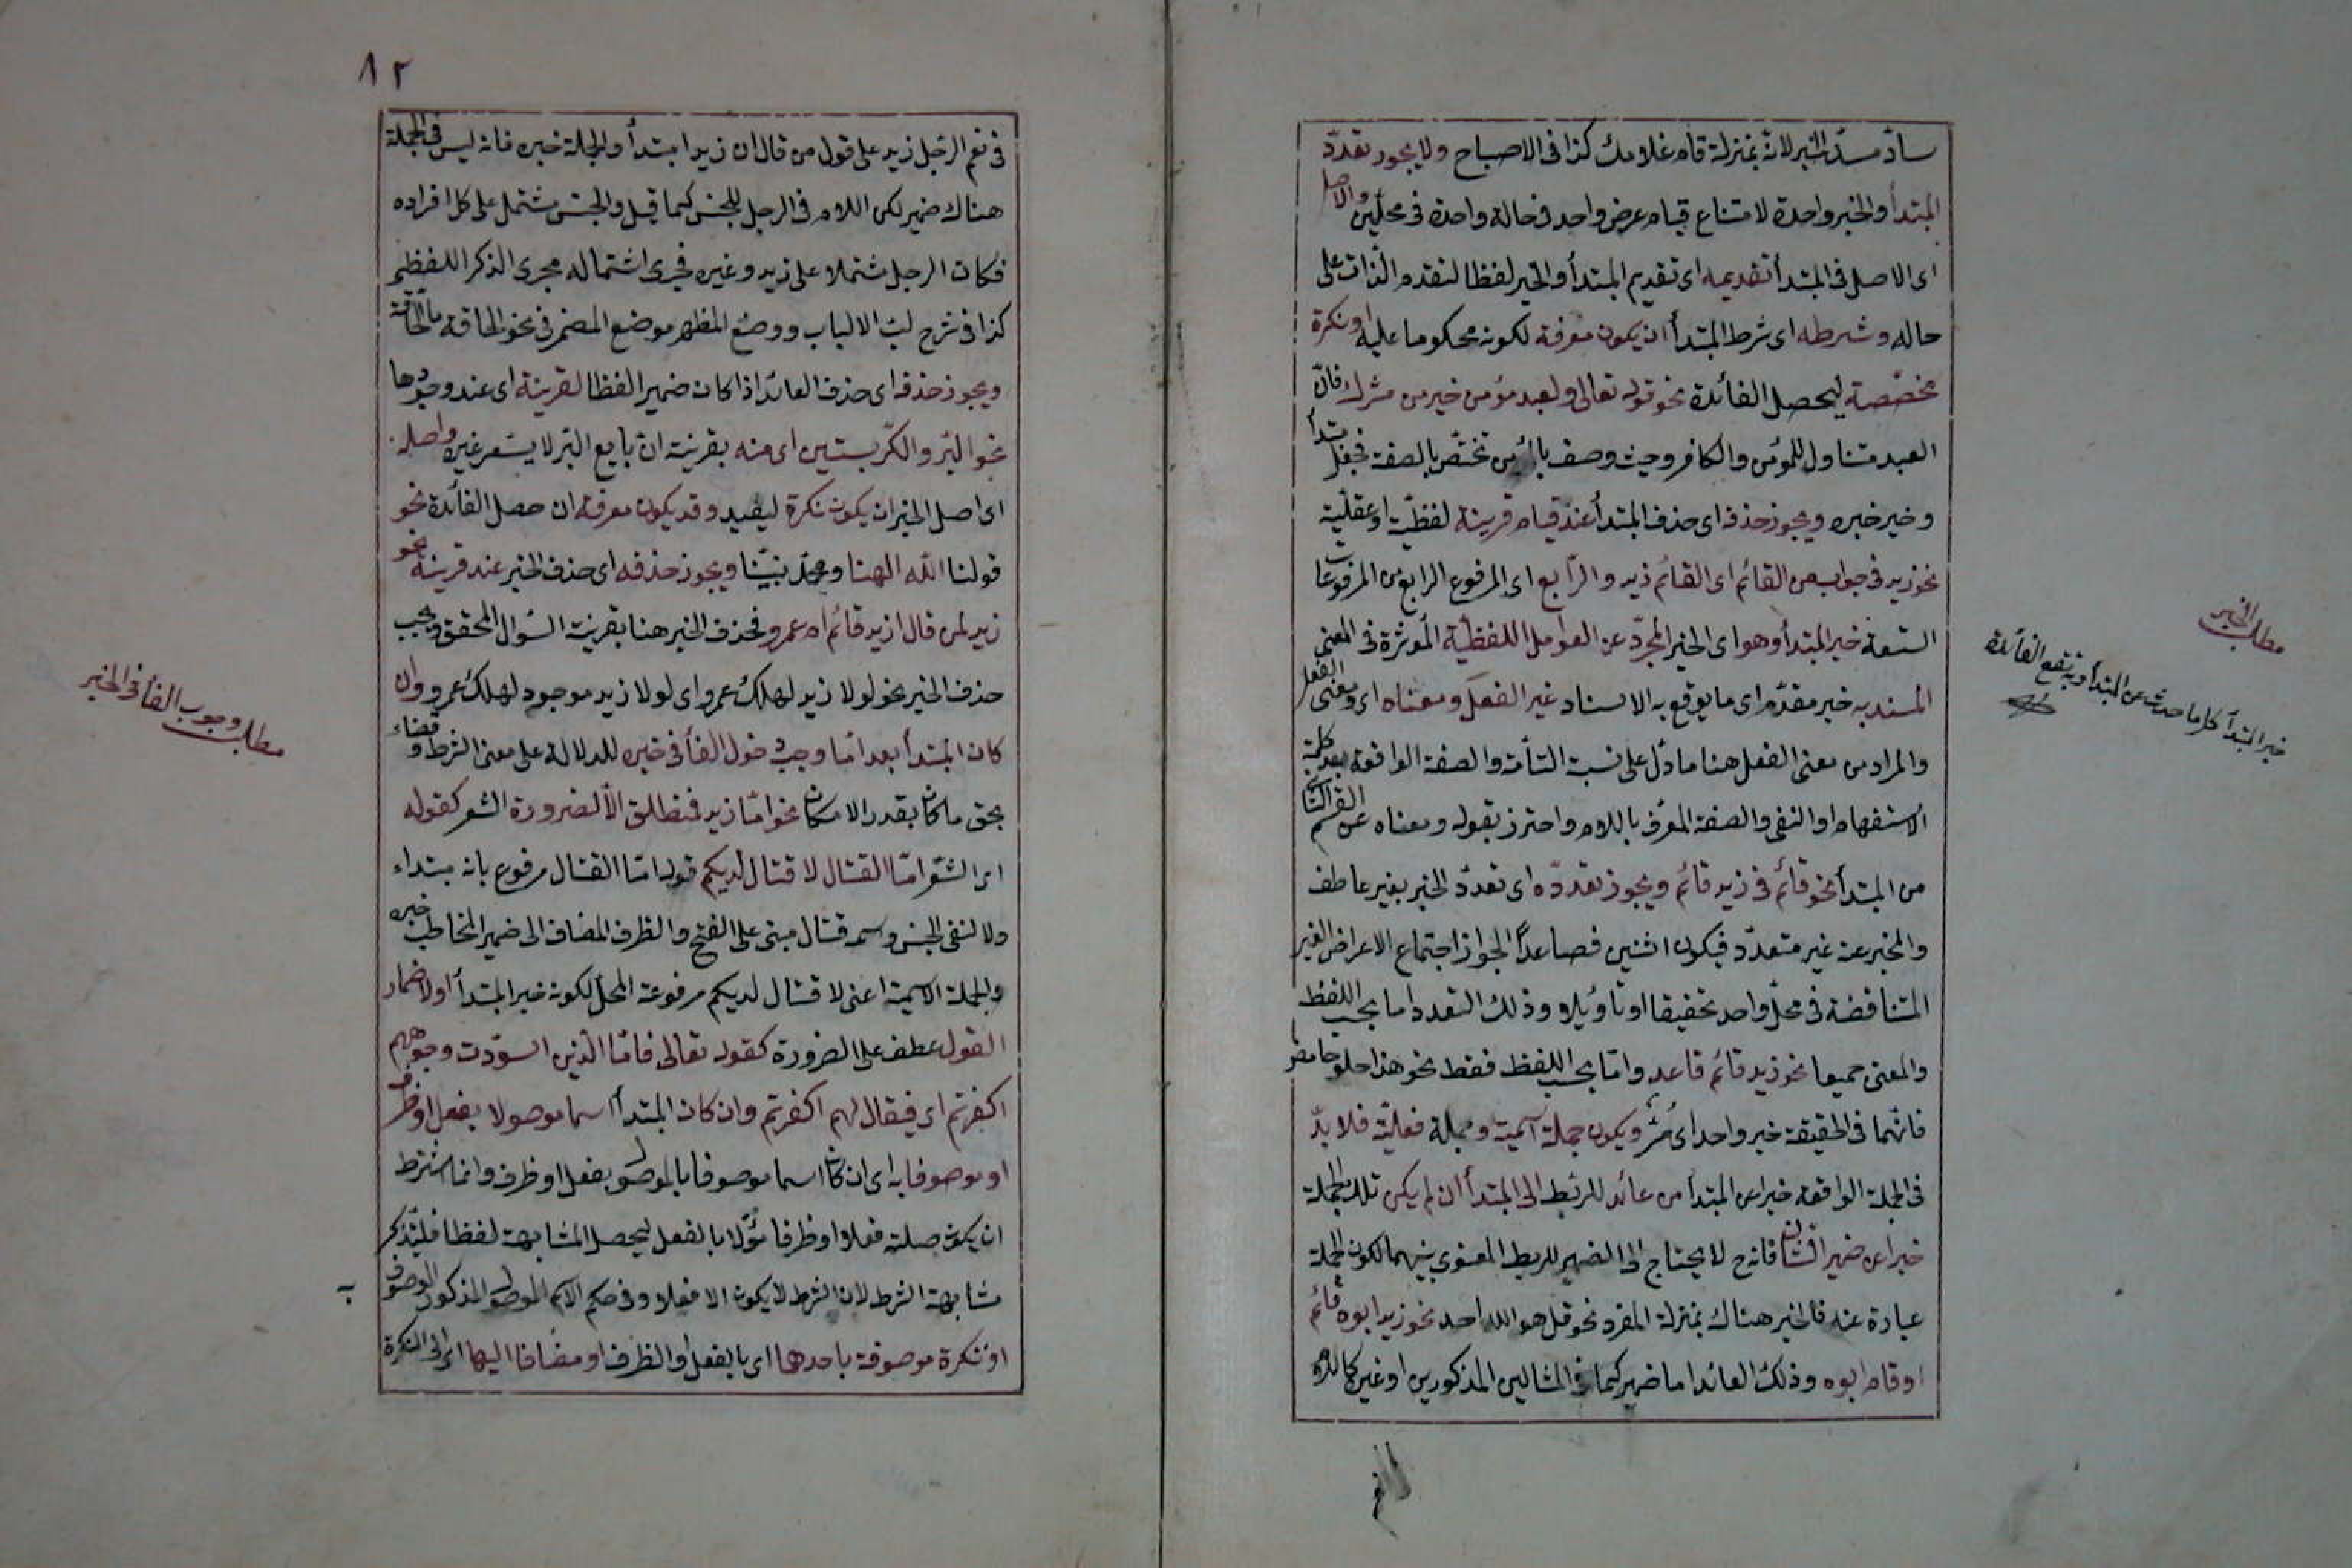 سادّ مسدّ الخبر لانه بمنزلة قام غلامك كذا فى الاصباح ولا يجوز تعدّد
المبتدأ والخبر واحدة لامتناع قيام عرض واحد فى حالة واحدة فى محلّين والاصل
اى الاصل فى المبتدأ تقديمه اى تقديم المبتدأ والخبر لفظا لتقدم الذات على
حاله وشرطه اى شرط المبتدأ ان يكون معرفة لكونه محكوما عليه او نكرة
مخصّصة ليحصل الفائدة نحو قوله تعالى ولعبد مؤمن خير من مشرك فانّ
العبد متناول للمؤمن والكافر وحيث وصف بالمؤمن تختصّ بالصفة فجعل مبتدأ
وخير خبره ويجوز حذفه اى حذف المبتدأ عند قيام قرينة لفظيّة او عقليّة
نحو زيد فى جواب من القائم اى القائم زيد والرّابع اى المرفوع الرابع من المرفوعات
التسعة خبر المبتدأ وهو اى الخبر المجرّد عن العوامل اللفظيّة المؤثرة فى المعنى
المسند به خبر مقدّم اى ما يوقع به الاسناد غير الفعل ومعناه اى ومعنى الفعل
والمراد من معنى الفعل هنا ما دلّ على نسبة التامّة والصفة الواقعة بعد كلمة
الاستفهام او النفى والصفة المعرّف باللام واحترز بقوله ومعناه عن القسم الثانى
من المبتدأ نحو قائم فى زيد قائم ويجوز تعدّده اى تعدّد الخبر بغير عاطف
والمخبر عنه غير متعدّد فيكون اثنين فصاعدًا لجواز اجتماع الاعراض الغير
المتناقضة فى محلّ واحد تحقيقا او تأويلا وذلك التعدد اما بحسب اللفظ
والمعنى جميعا نحو زيد قائم قاعد وامّا بحسب اللفظ فقط نحو هذا حلو حامض
فانّهما فى الحقيقة خبر واحد اى مُزّ ويكون جملة اسمية وجملة فعليّة فلا بدّ
فى الجملة الواقعة خبرا عن المبتدأ من عائد للربط الى المبتدأ ان لم يكن تلك الجملة
خبرا عن ضمير الشان فانه ح لا يحتاج الى الضمير للربط المعنوى بينهما لكون الجملة
عبارة عنه فالخبر هناك بمنزلة المفرد نحو قل هو الله احد نحو زيد ابوه قائم
او قام ابوه وذلك العائد اما ضمير كما فى المثالين المذكورين او غيره كاللام
مطلب الخبر
خبر المبتدأ كل ما حدث عن المبتدأ وبه تقع الفائدة
٨٢
فى نعم الرجل زيد على قول من قال ان زيدا مبتدأ والجملة خبره فانه ليس فى الجملة
هناك ضمير لكن اللام فى الرجل للجنس كما قيل والجنس مشتمل على كل افراده
فكان الرجل مشتملا على زيد وغيره فجرى اشتماله مجرى الذكر اللفظى
كذا فى شرح لبّ الالباب ووضع المظهر موضع المضمر فى نحو الحاقة ما الحاقة
ويجوز حذفه اى حذف العائد اذا كان ضميرا لفظا لقرينة اى عند وجودها
نحو البر والكرّ بستين اى منه بقرينة ان بايع البر لا يسعر غيره واصله
اى اصل الخبر ان يكون نكرة ليفيد وقد يكون معرفة ان حصل الفائدة نحو
قولنا الله الهنا ومحمد نبيّنا ويجوز حذفه اى حذف الخبر عند قرينة نحو
زيد لمن قال ازيد قائم ام عمرو فحذف الخبر هنا بقرينة السؤال المحقق ويجب
حذف الخبر نحو لولا زيد لهلك عمرو اى لولا زيد موجود لهلك عمرو وان
كان المبتدأ بعد امّا وجب دخول الفاء فى خبره للدلالة على معنى الشرط وقضاء
بحق ما كان بقدر الامكان نحو امّا زيد فمنطلق الّا لضرورة الشعر كقوله
اى الشعر امّا القتال لا قتال لديكم قوله امّا القتال مرفوع بانه مبتداء
ولا لنفى الجنس واسمه قتال مبنى على الفتح والظرف المضاف الى ضمير المخاطب خبره
والجملة الاسمية اعنى لا قتال لديكم مرفوعة المحل لكونه خبر المبتدأ او لاضمار
القول عطف على الضرورة كقوله تعالى فامّا الّذين اسودّت وجوههم
اكفرتم اى فيقال لهم اكفرتم وان كان المبتدأ اسما موصولا بفعل او ظرف
او موصوفا به اى ان كان اسما موصوفا بالموصول بفعل او ظرف وانما اشترط
ان يكون صلته فعلا او ظرفا مؤوّلا بالفعل ليحصل المشابهة لفظا فليتذكر
مشابهة الشرط لان الشرط لا يكون الا فعلا وفى حكم الاسم الموصول المذكور الموصوف به
او نكرة موصوفة باحدهما اى بالفعل او الظرف او مضافا اليها اى الى النكرة
مطلب وجوب الفأ فى الخبر